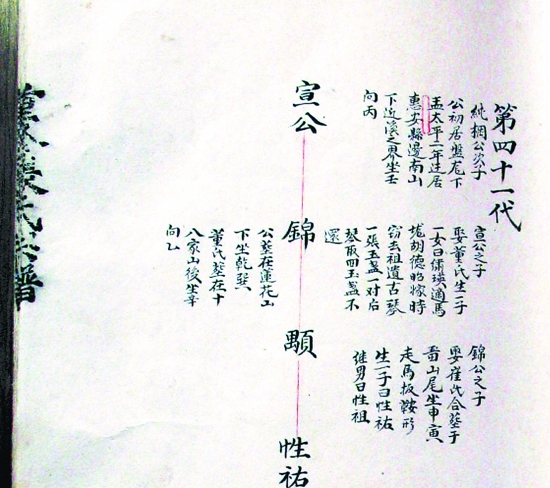 第四十一代
純桐公次子
公初居盤龙下
孟太平二年迁居
惠安縣邊南山
下近溪之界坐壬
向丙
宣公之子
娶董氏生一子
一女曰繡瑛適馬
垅胡德昭嫁時
窃去祖遺古琴
一張玉盏一对后
琴取回玉盏不
還
錦公之子
娶崔氏合葬于
山尾坐申寅
走馬扳鞍形
生一子曰性祐
继男曰性祖
宣公
錦
顒
性祐
公葬在蓮花山
下坐乾巽
董氏葬在十
八家山後坐辛
向乙